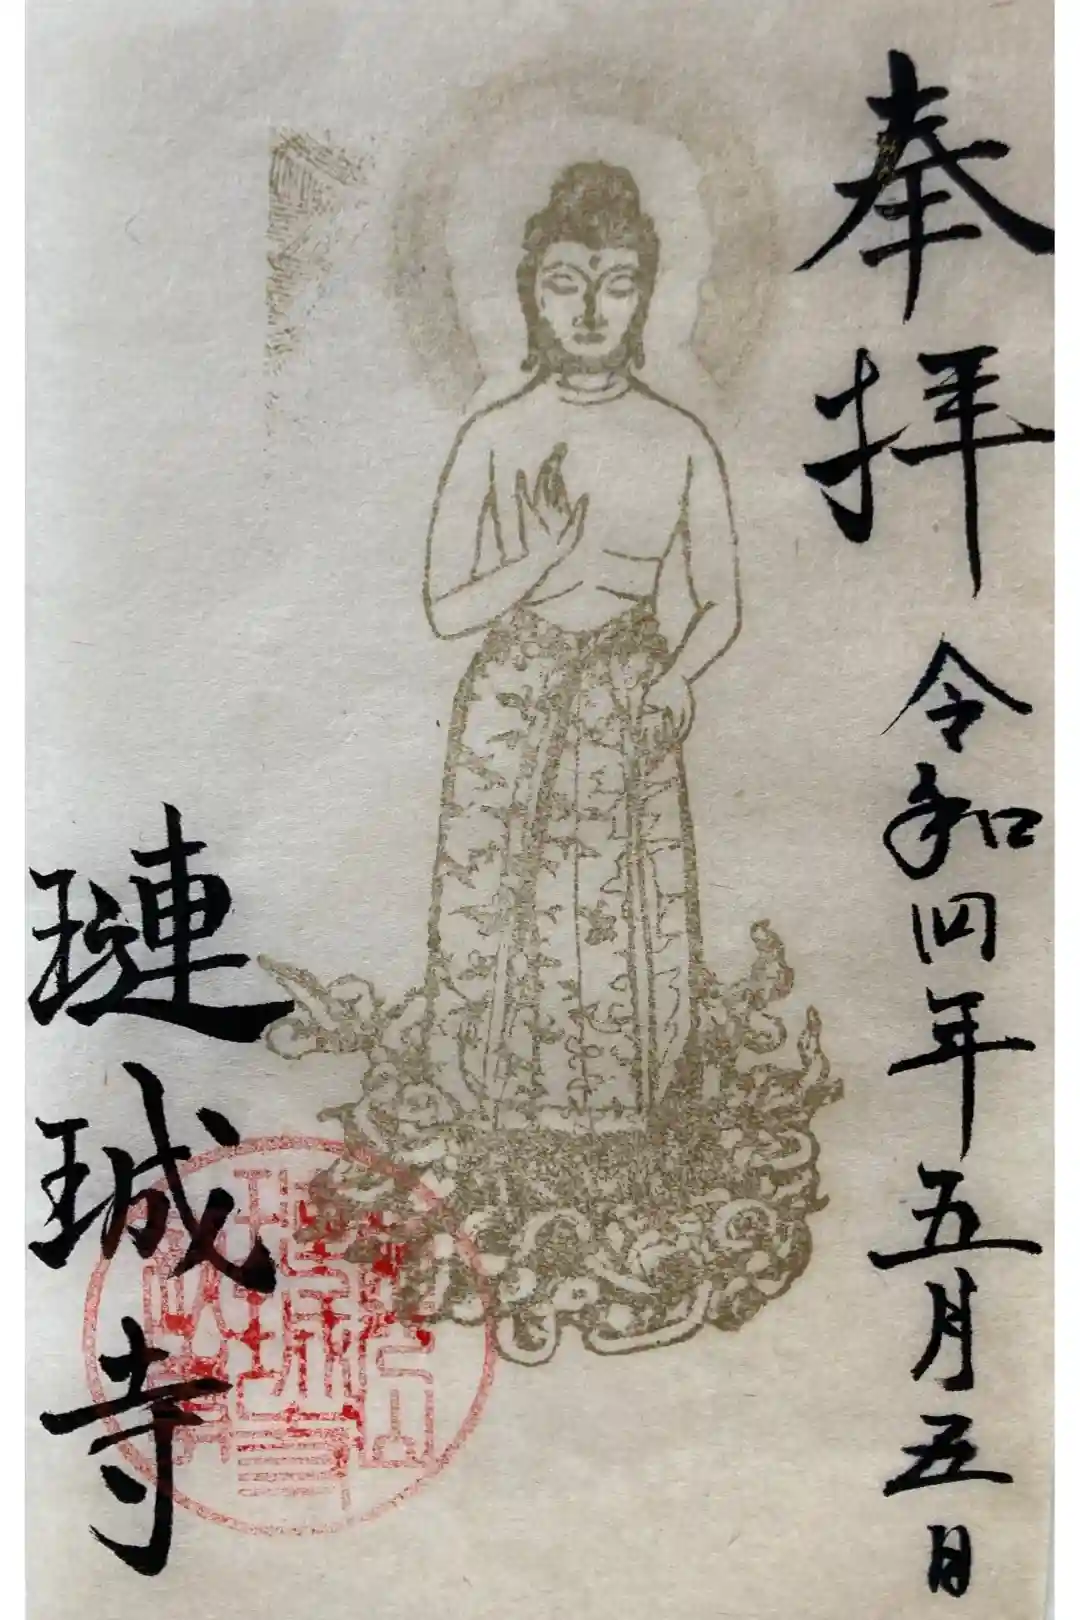 奉拝
令和四年五月五日
璉珹寺